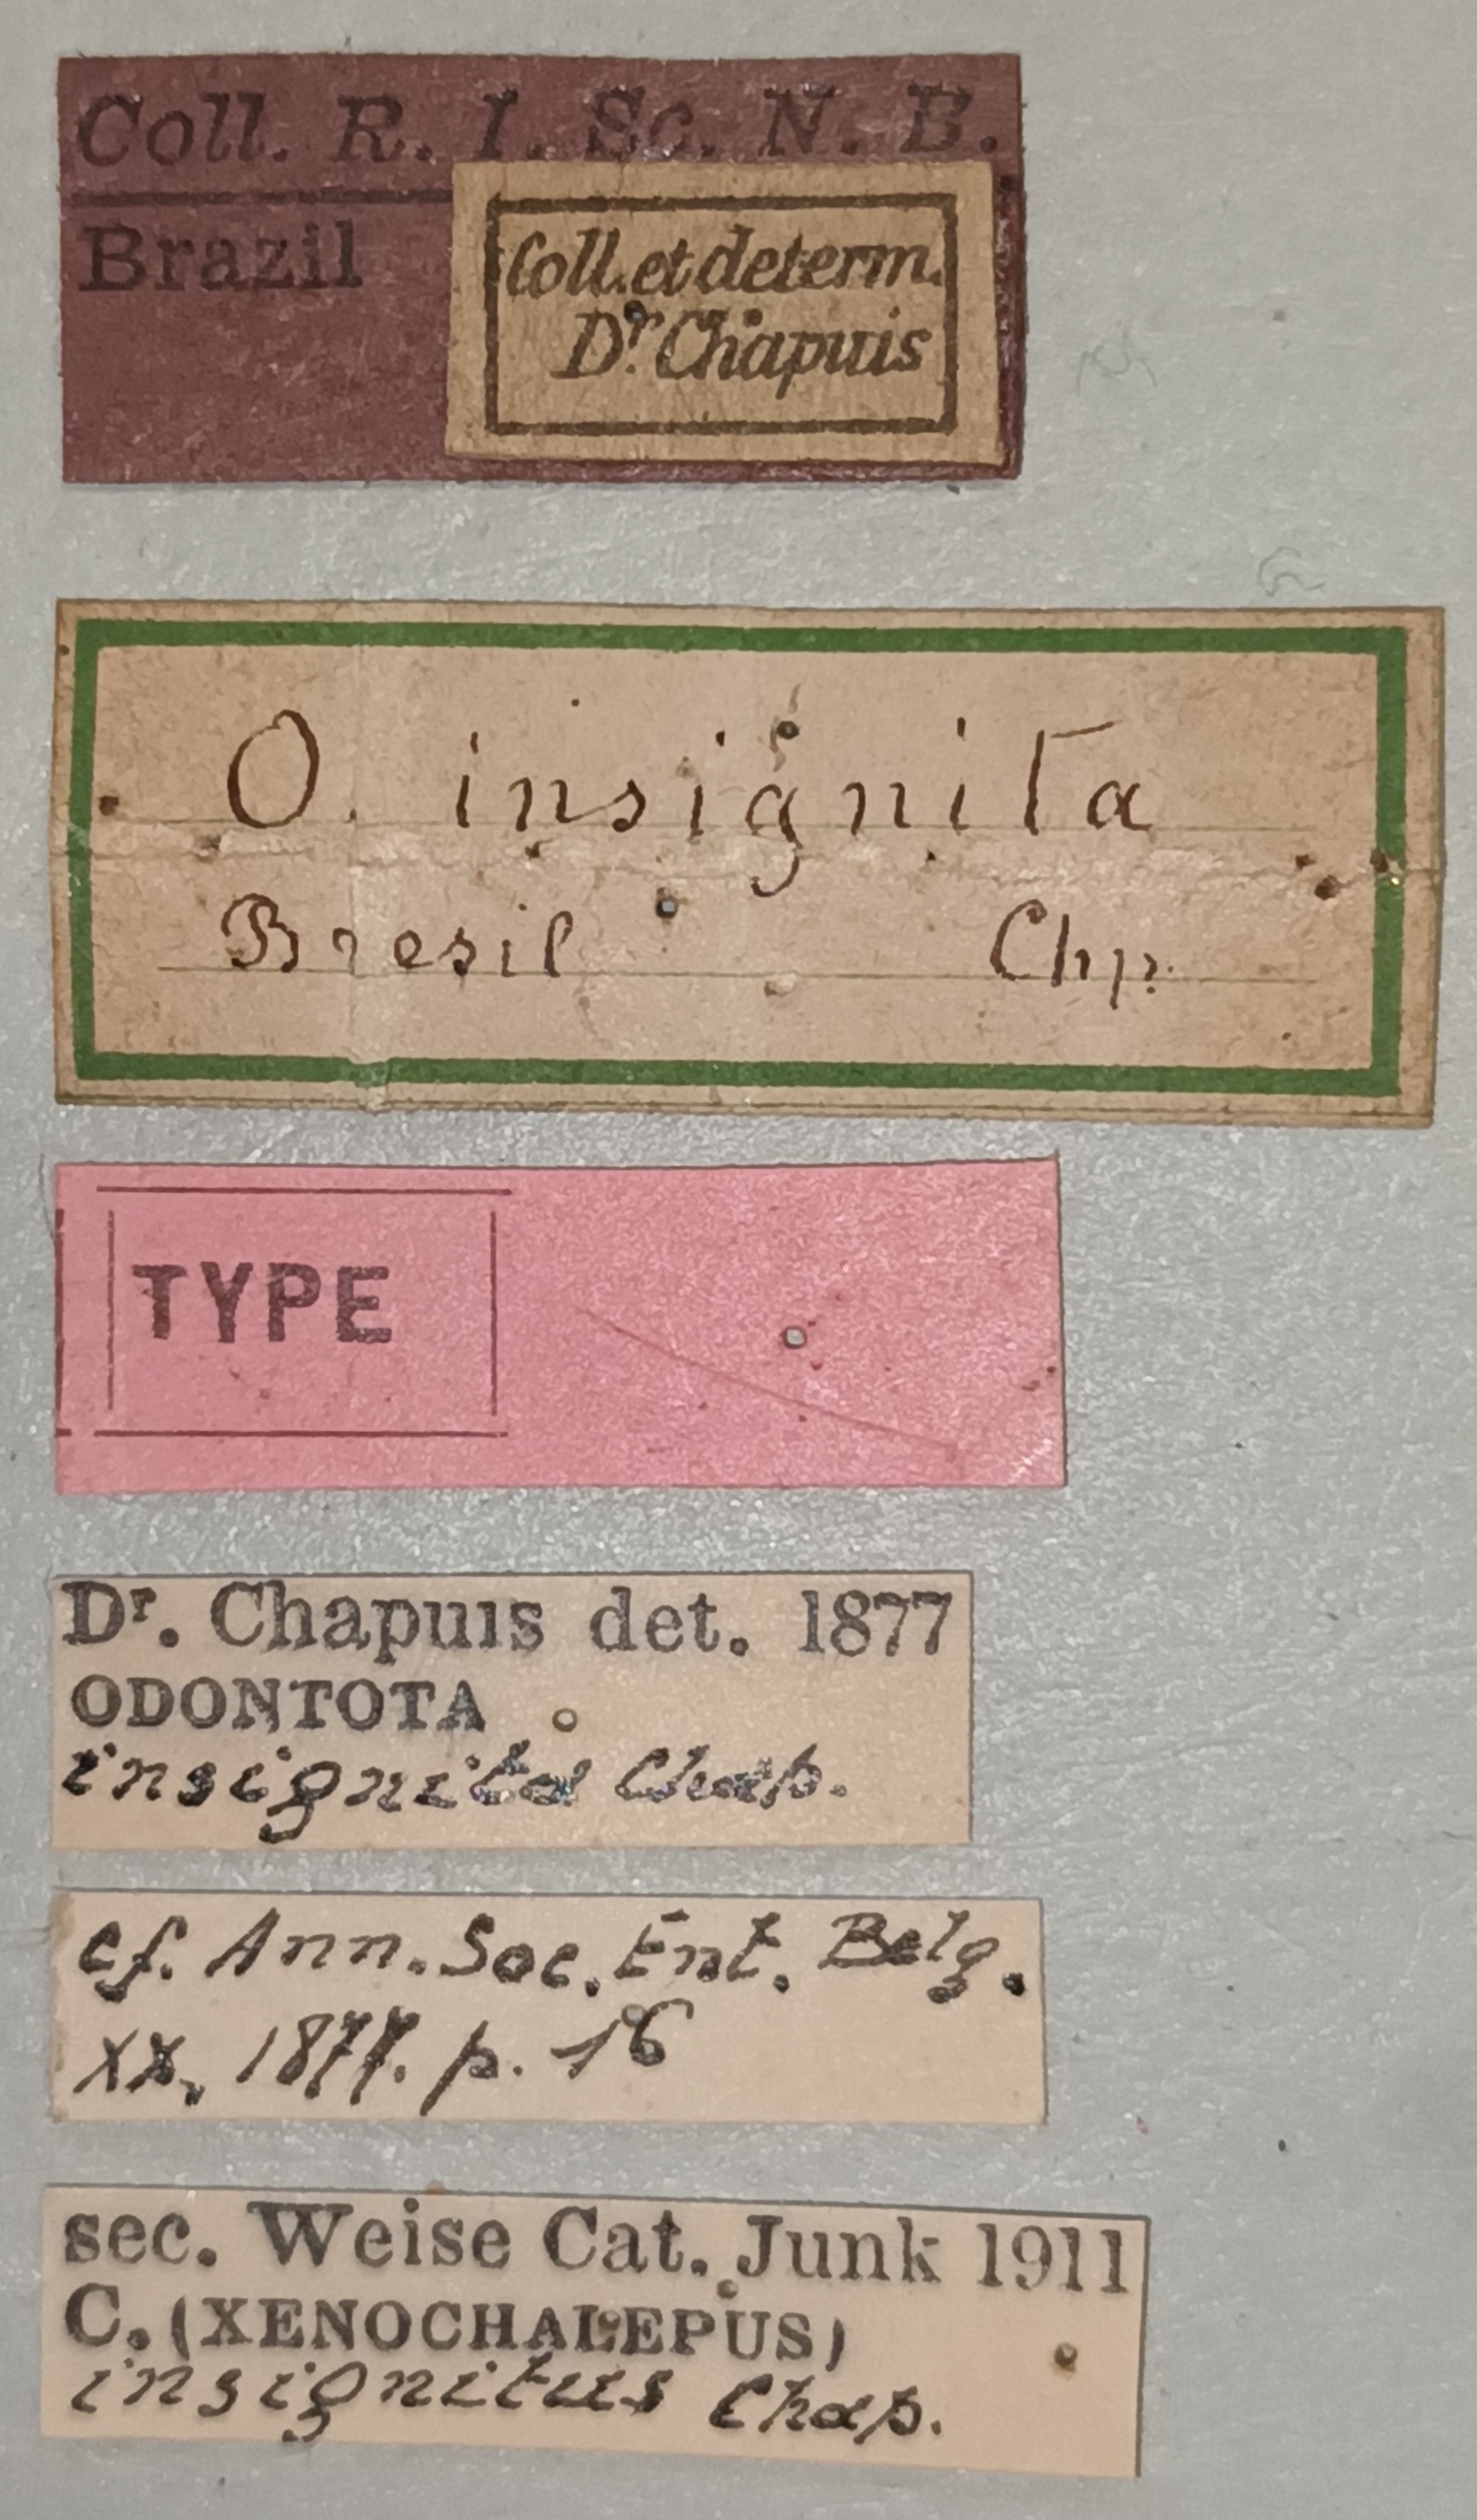 Coll. R. I. Sc. N. B.
Brazil
Coll. et determ.
Dr. Chapuis
O. insignita
Bresil Chp.
TYPE
Dr. Chapuis det. 1877
ODONTOTA
insignita Chap.
cf. Ann. Soc. Ent. Belg.
XX, 1877. p. 16
sec. Weise Cat. Junk 1911
C. (XENOCHALEPUS)
insignitus Chap.